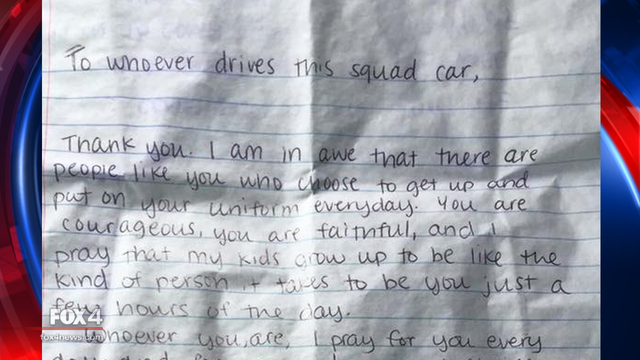 To whoever drives this squad car,
Thank you. I am in awe that there are
people like you who choose to get up and
put on your uniform everyday. You are
courageous, you are faithful, and I
pray that my kids grow up to be like the
kind of person it takes to be you just a
few hours of the day.
Whoever you are, I pray for you every
FOX 4
fox4news.com